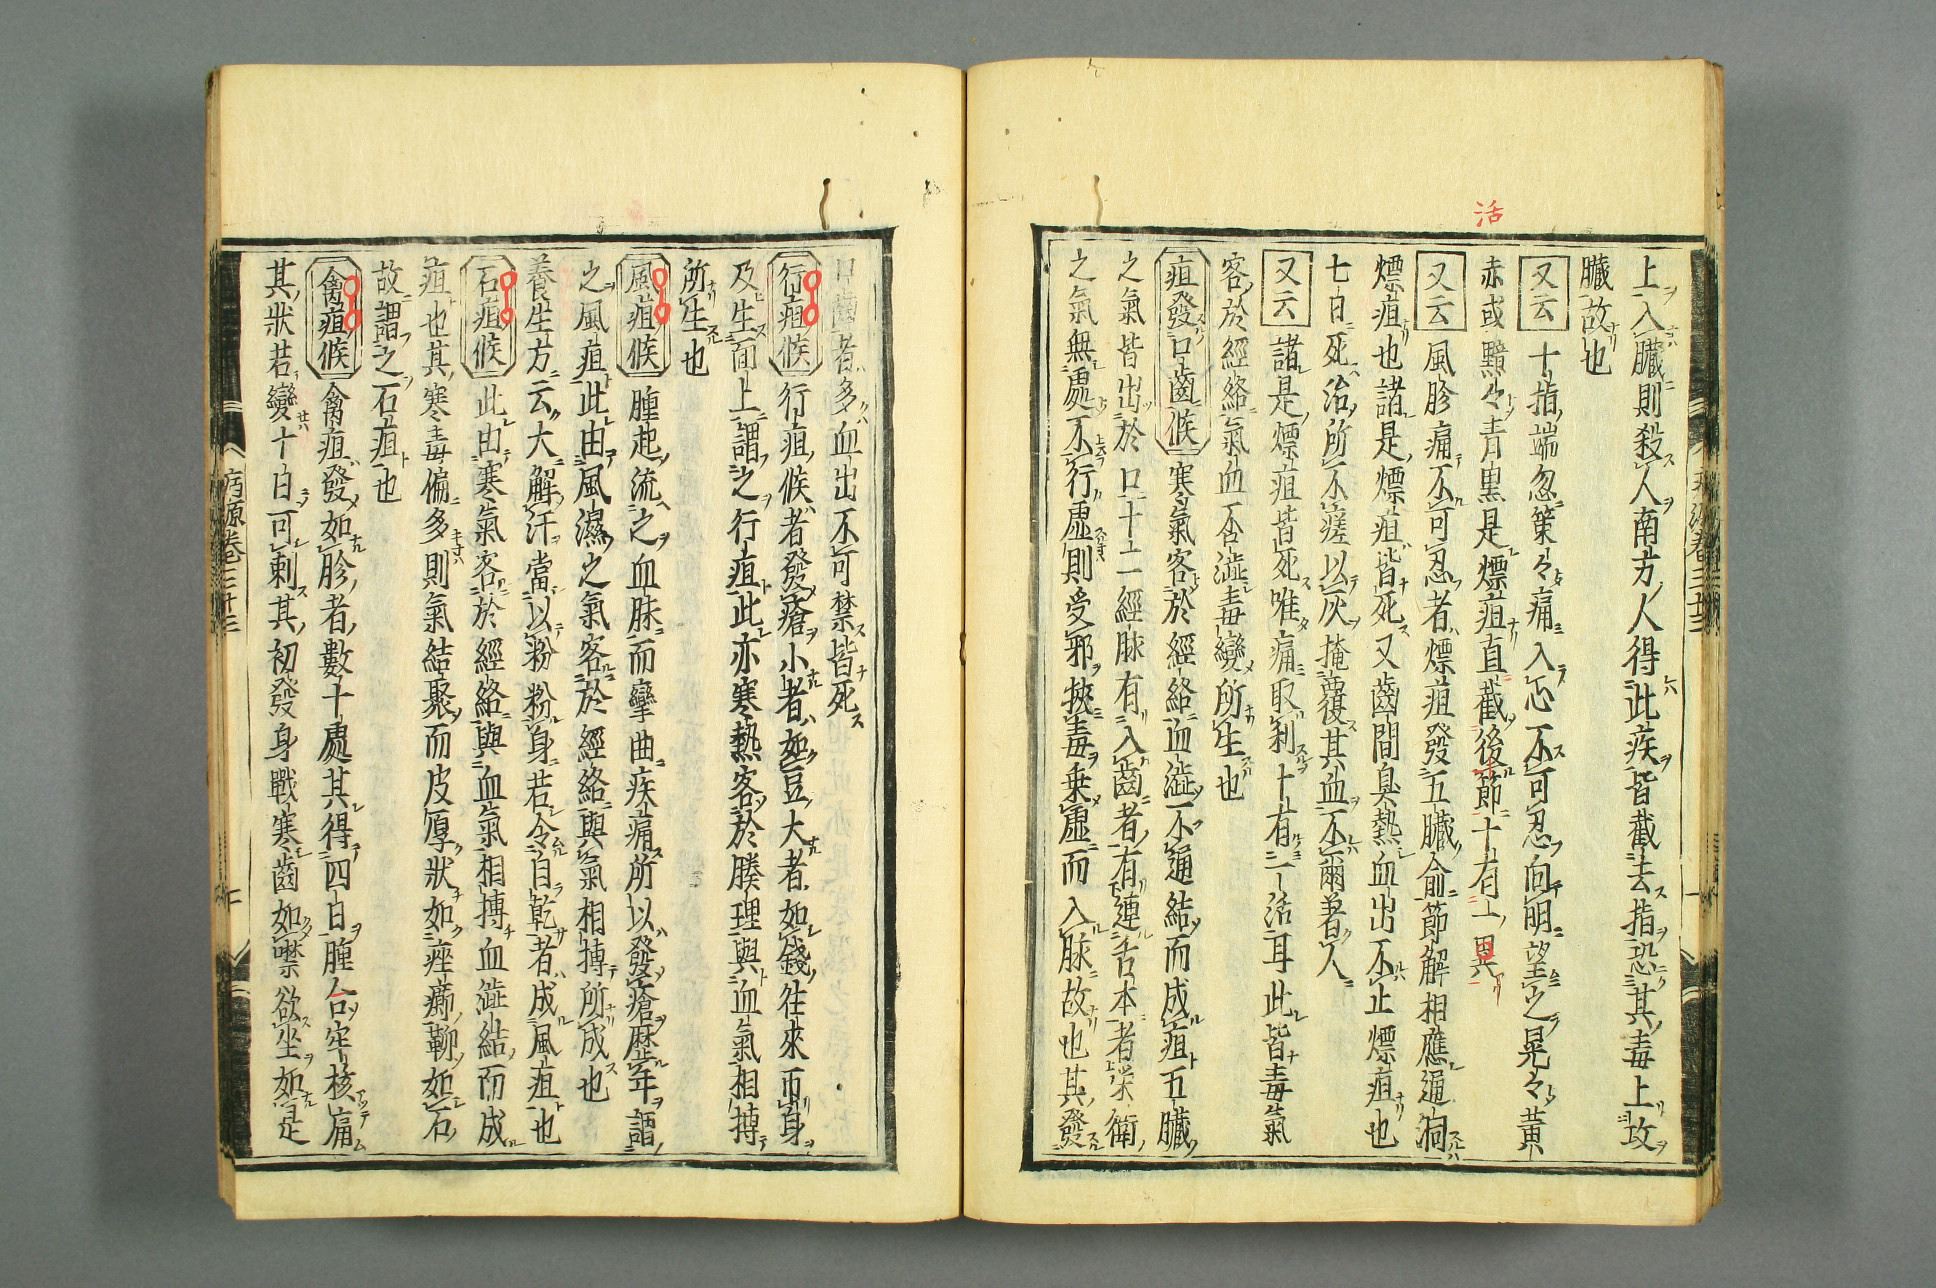 活
上入臟則殺人南方人得此疾皆截去指恐其毒上攻
臟故也
又云十指端忽策々痛入心不可忍向明望之晃々黃
赤或黯々青黒是熛疽直截後節十有一異
又云風胗痛不可忍者熛疽發五臟俞節解相應通洞
熛疽也諸是熛疽皆死又齒間臭熱血出不止熛疽也
七日死治所不瘥以灰掩覆其血不爾著人
又云諸是熛疽皆死唯痛取利十有二活耳此皆毒氣
客於經絡氣血否澁毒變所生也
疽發口齒候寒氣客於經絡血澁不通結而成疽五臟
之氣皆出於口十二經脉有入齒者有連舌本者榮衛
之氣無處不行虛則受邪挾毒乗虛而入脉故也其發
口齒者多血出不可禁皆死
行疽候行疽候者發瘡小者如豆大者如錢往來匝身
及生面上謂之行疽此亦寒熱客於腠理與血氣相搏
所生也
風疽候腫起流之血脉而攣曲疾痛所以發瘡歷年謂
之風疽此由風濕之氣客於經絡與氣相搏所成也
養生方云大解汗當以粉粉身若令自乾者成風疽也
石疽候此由寒氣客於經絡與血氣相搏血澁結而成
疽也其寒毒偏多則氣結聚而皮厚狀如痤癤鞕如石
故謂之石疽也
禽疽候禽疽發如胗者數十處其得四日腫合牢核痛
其狀若變十日可刺其初發身戰寒齒如噤欲坐如是
病源卷三十三